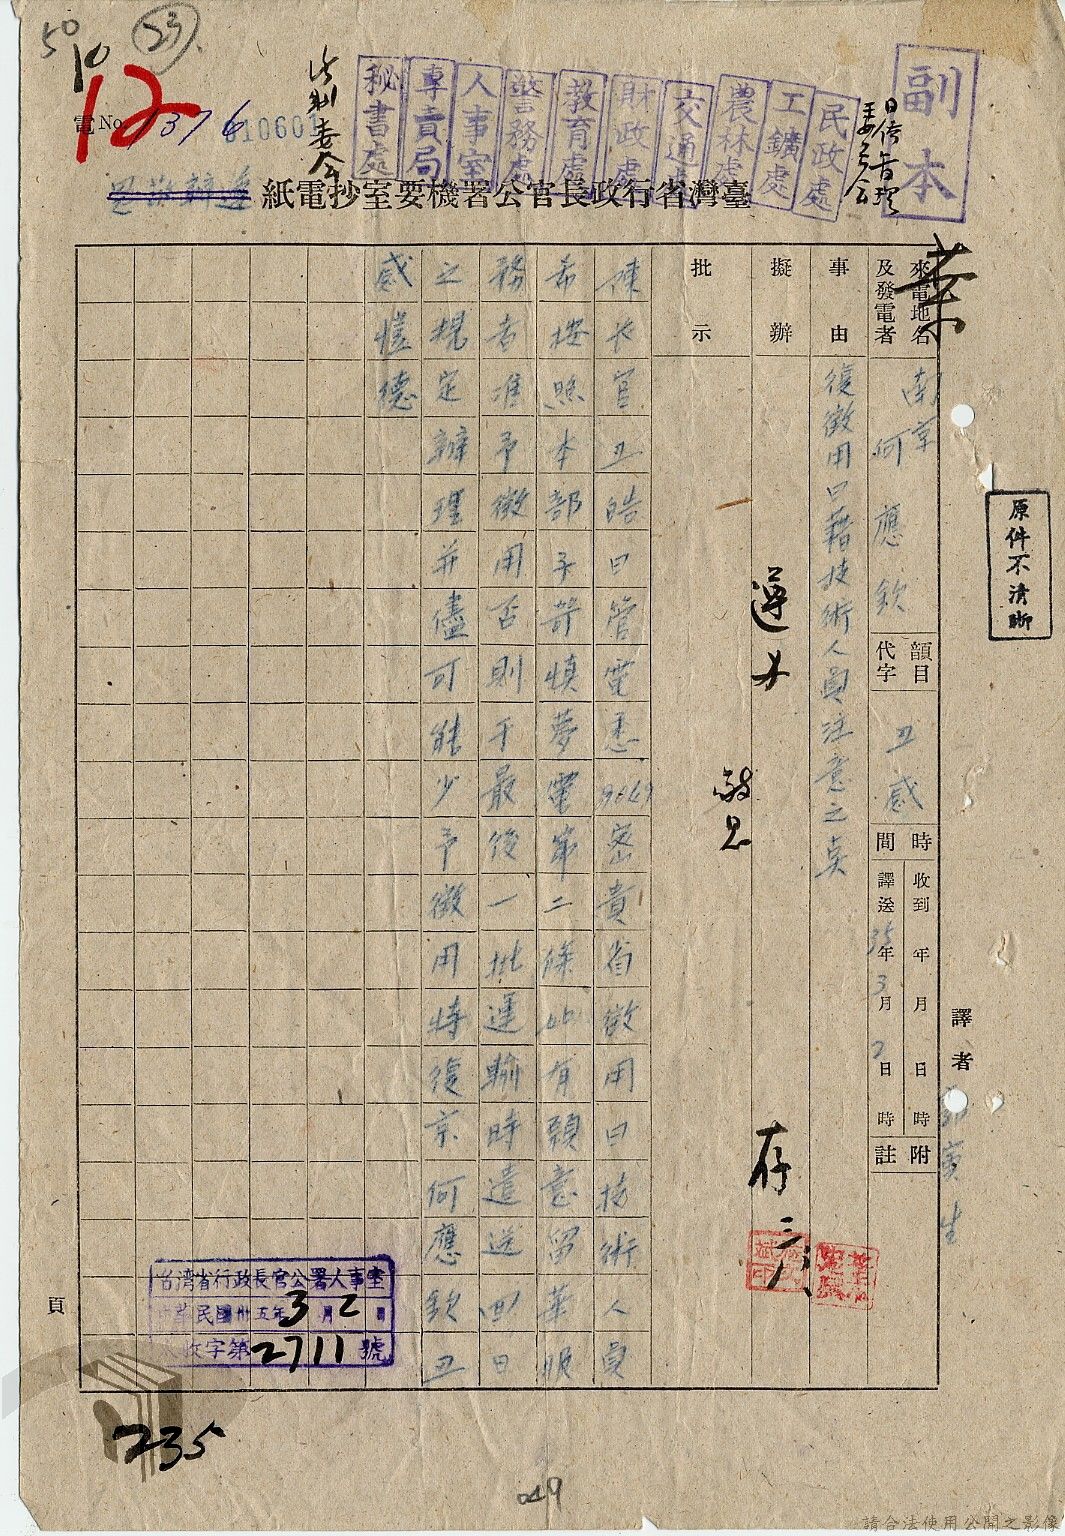 50
10
23
12
電No.
376
010601
法制委会
秘書處
專賣局
人事室
警務處
教育處
財政處
交通處
農林處
工鑛處
民政處
日僑管理
委員会
副本
臺灣省行政長官公署機要室抄電紙
來電地名
及發電者
南京
何應欽
韻目
代字
丑感
時間
收到 年 月 日 時
譯送 35年 3月 2日 時
附註
事由
復徵用日籍技術人員注意之点
擬辦
遵办
存
批示
陳長官丑皓日管電悉9649密貴省徵用日技術人員
希按照本部子荷慎夢電第二條必有願意留華服
務者准予徵用否則于最後一批運輸時遣送回日
之規定辦理并儘可能少予徵用特復京何應欽丑
感慎德
原件不清晰
譯者
生
頁
台湾省行政長官公署人事室
中華民國卅五年3月2日
收字第2711號
235
049
請合法使用公開之影像